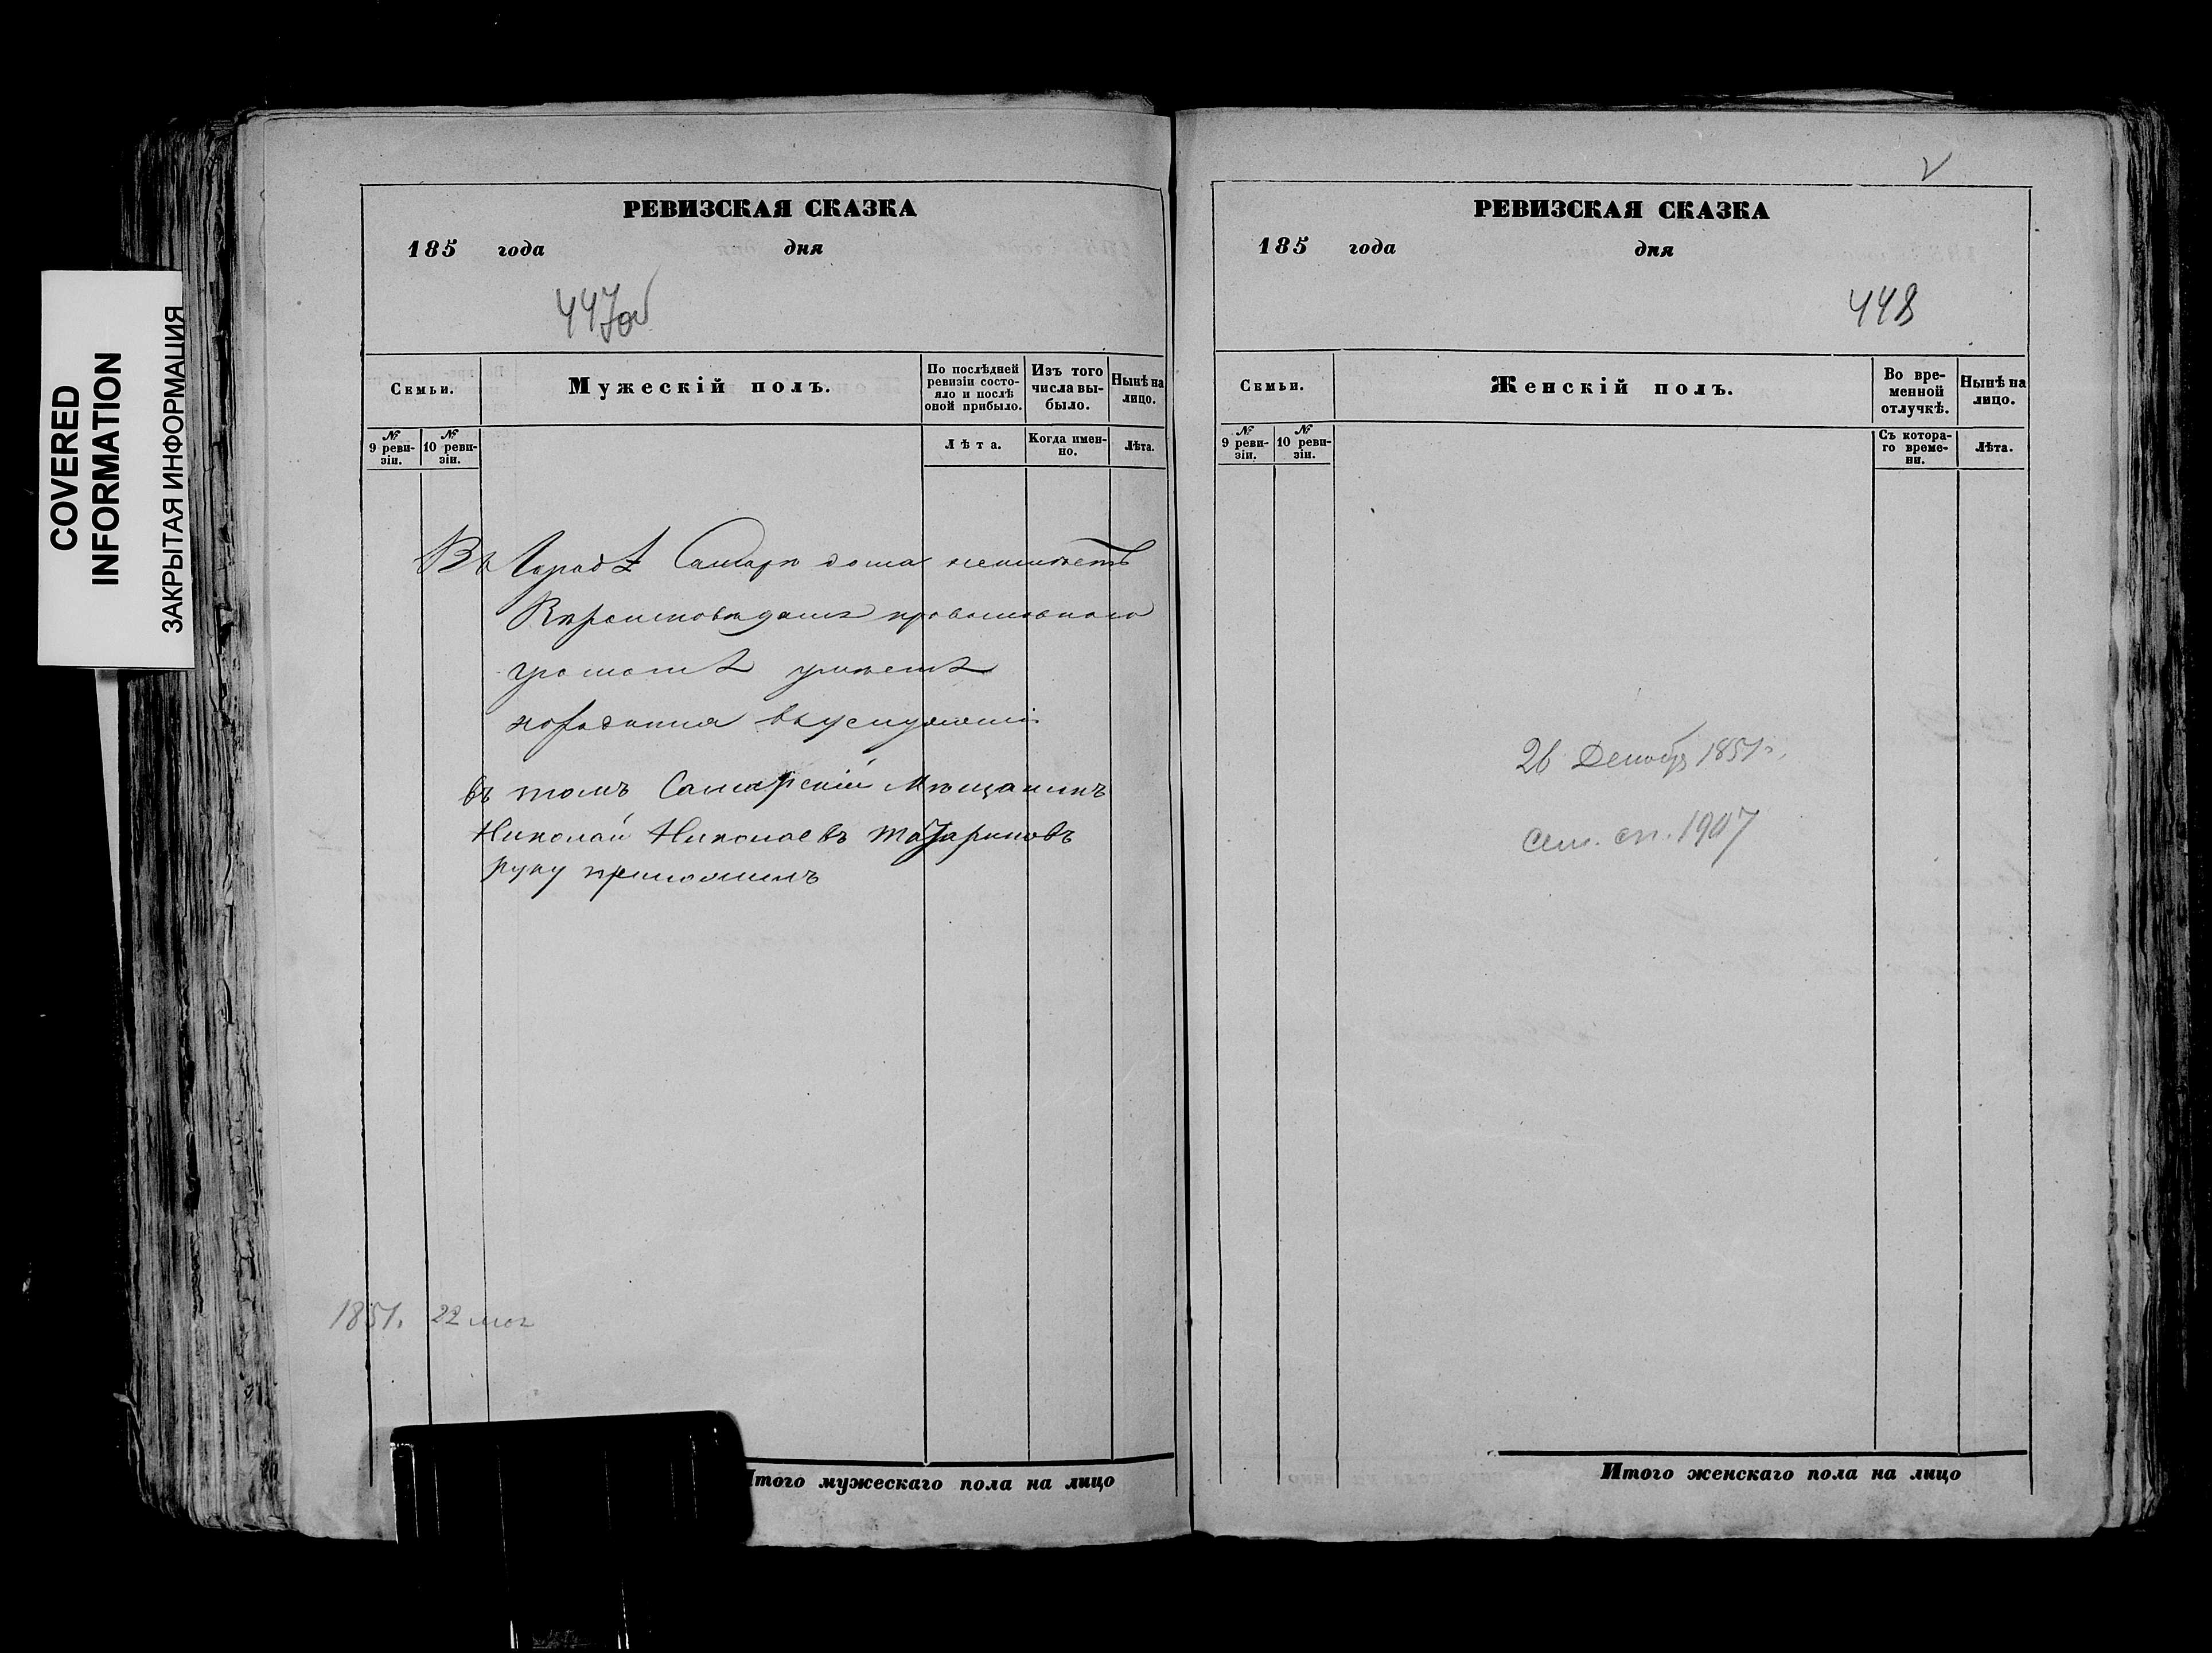 COVERED
INFORMATION
ЗАКРЫТАЯ ИНФОРМАЦИЯ
РЕВИЗСКАЯ СКАЗКА
185 года дня
447об
Семьи.
Мужескій полъ.
По послѣдней ревизіи состо-
яло и послѣ
оной прибыло.
Изъ того
числа вы-
было.
Нынѣ на
лицо.
№
9 реви-
зіи.
№
10 реви-
зіи.
Лѣта.
Когда имен-
но.
Лѣта.
Въ Городѣ Самарѣ дома неимѣетъ
Вѣроисповѣданія православнаго
грамотѣ умѣетъ
въ томъ Самарскій Мѣщанинъ
Николай Николаевъ
руку приложилъ
1851. 22
Итого мужескаго пола на лицо
РЕВИЗСКАЯ СКАЗКА
185 года дня
448
Семьи.
Женскій полъ.
Во вре-
менной
отлучкѣ.
Нынѣ на
лицо.
№
9 реви-
зіи.
№
10 реви-
зіи.
Съ котора-
го време-
ни.
Лѣта.
26 Декабр 1851 г.
сем. сп. 1907
Итого женскаго пола на лицо